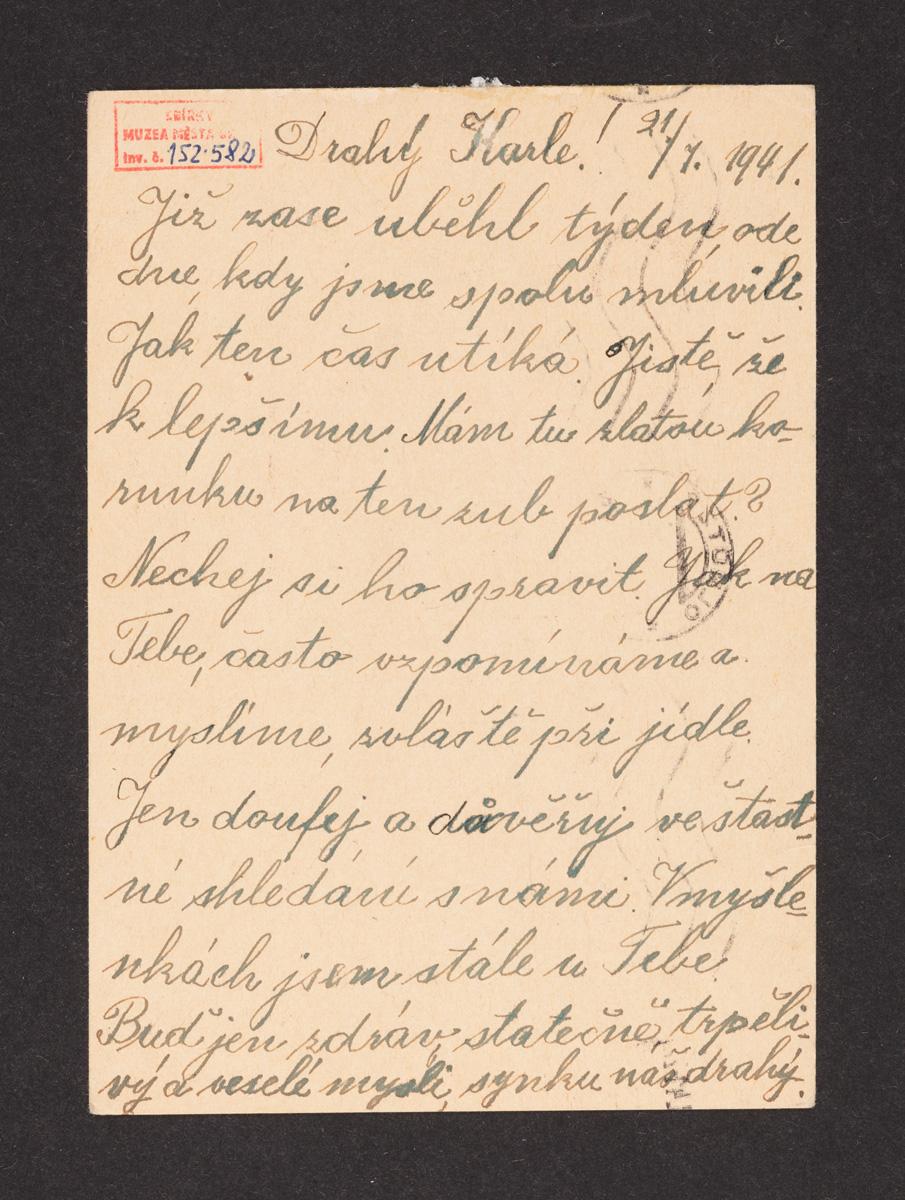 SBÍRKY
MUZEA MĚSTA
Inv. č. 152.582
Drahý Karle! 21/7. 1941.
Již zase uběhl týden, ode
dne, kdy jsme spolu mluvili.
Jak ten čas utíká. Jistě, že
k lepšímu. Mám tu zlatou ko-
runku na ten zub poslat?
Nechej si ho spravit. Jak na
Tebe, často vzpomínáme a
myslíme, zvláště při jídle.
Jen doufej a důvěřuj ve šťast-
né shledání s námi. V myšle-
nkách jsem stále u Tebe.
Buď jen zdráv, statečně, trpěli-
vý a veselé mysli, synku náš drahý.